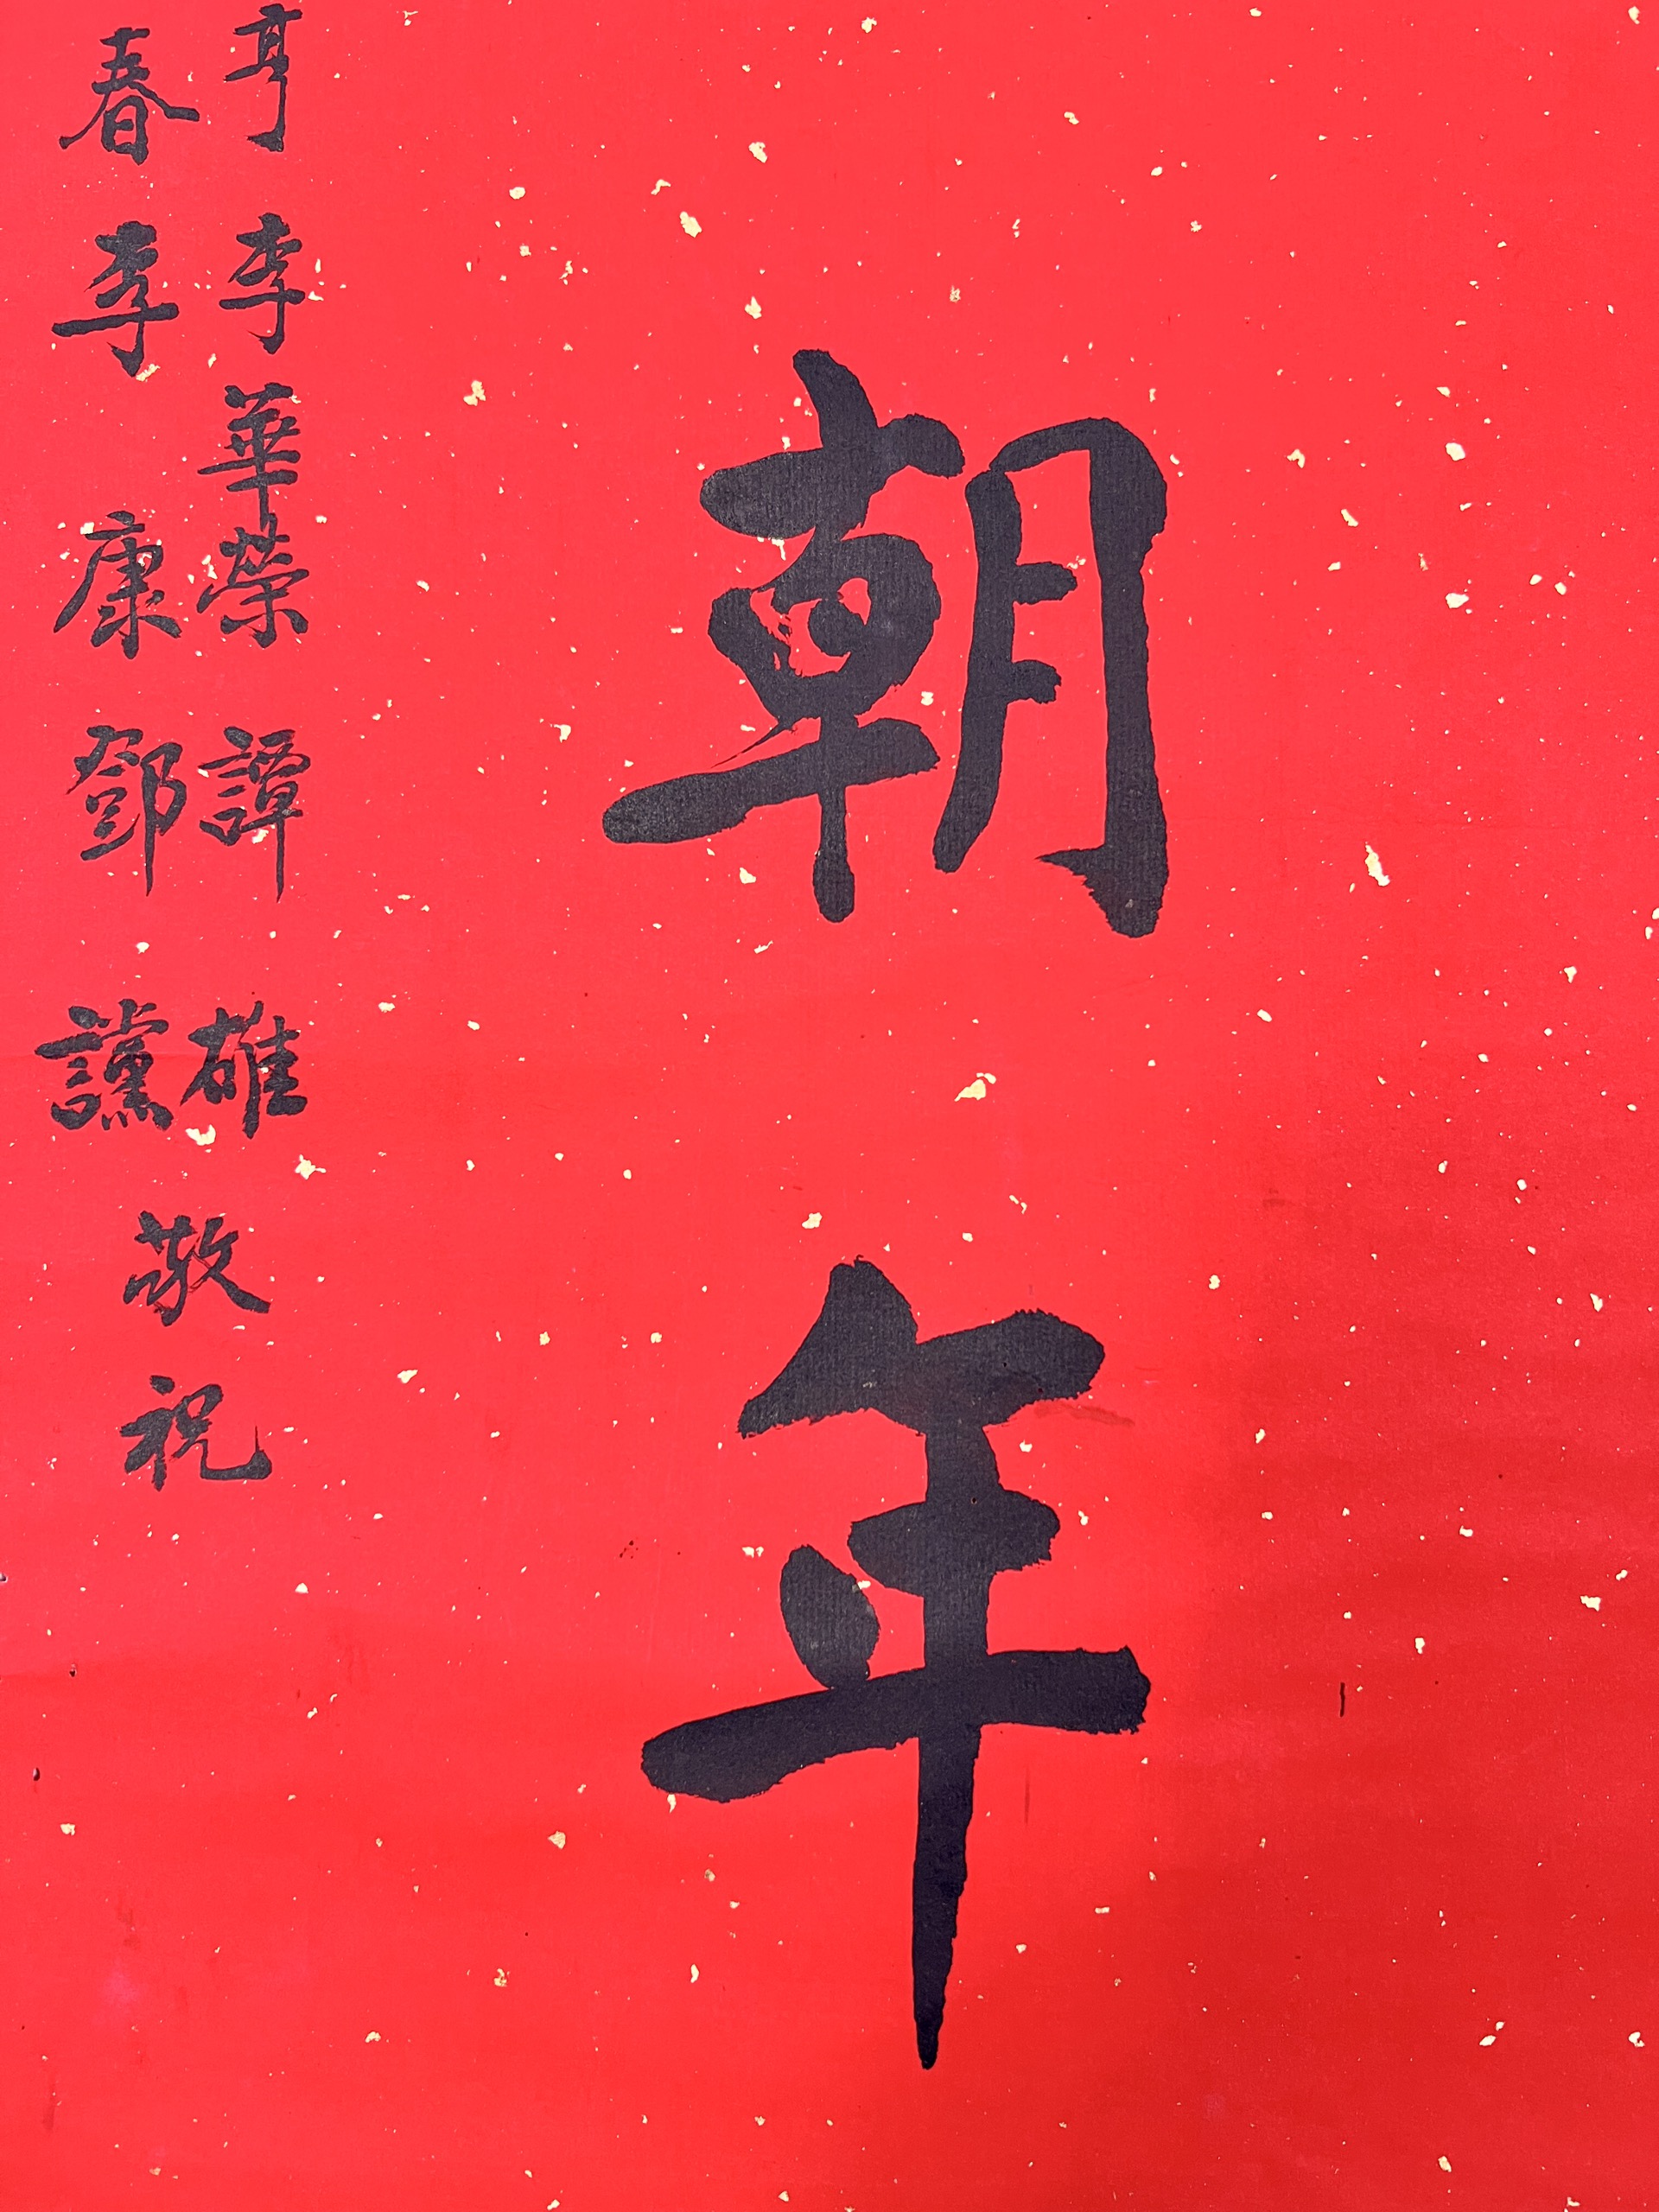 朝年
亨李華榮譚雄
春李康鄧讜
敬祝